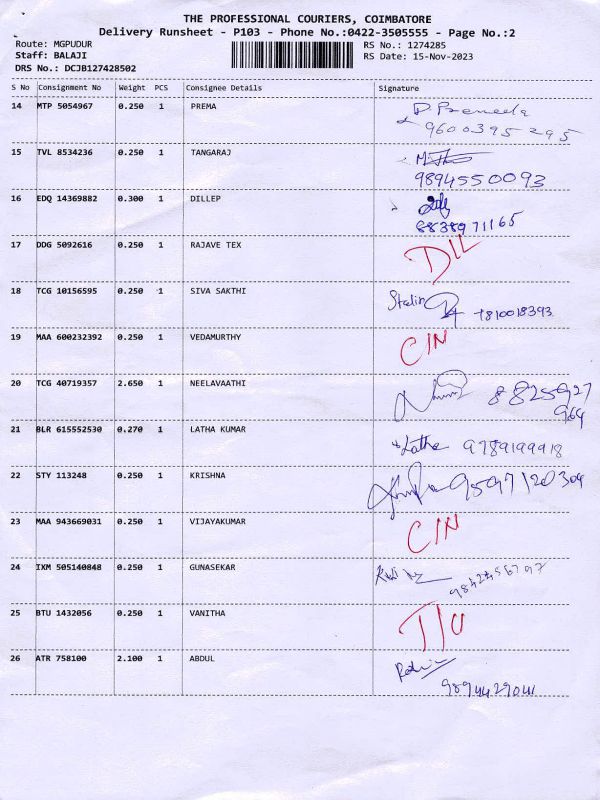 THE PROFESSIONAL COURIERS, COIMBATORE
Delivery Runsheet - P103 - Phone No.:0422-3505555 - Page No.:2
Route: MGPUDUR RS No.: 1274285
Staff: BALAJI RS Date: 15-Nov-2023
DRS No.: DCJB127428502
S No Consignment No Weight PCS Consignee Details Signature
14 MTP 5054967 0.250 1 PREMA
9600395295
15 TVL 8534236 0.250 1 TANGARAJ
9894550093
16 EDQ 14369882 0.300 1 DILLEP
8838971165
17 DDG 5092616 0.250 1 RAJAVE TEX D/L
18 TCG 10156595 0.250 1 SIVA SAKTHI Stalin
19 MAA 600232392 0.250 1 VEDAMURTHY C/N
20 TCG 40719357 2.650 1 NEELAVAATHI 8825927
964
21 BLR 615552530 0.270 1 LATHA KUMAR Latha 9789199918
22 STY 113248 0.250 1 KRISHNA 9597120304
23 MAA 943669031 0.250 1 VIJAYAKUMAR C/N
24 IXM 505140848 0.250 1 GUNASEKAR
25 BTU 1432056 0.250 1 VANITHA
26 ATR 758100 2.100 1 ABDUL
9894429041